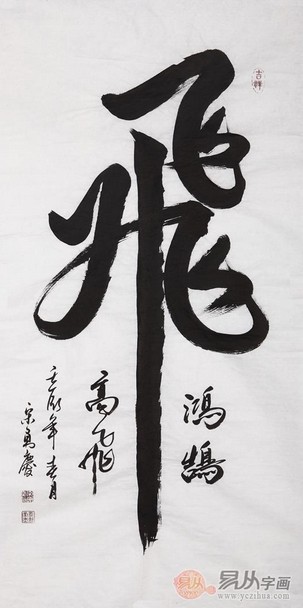 吉祥
飛
鴻鵠
高飛
壬辰年春月
易从
易从字画
www.yczihua.com